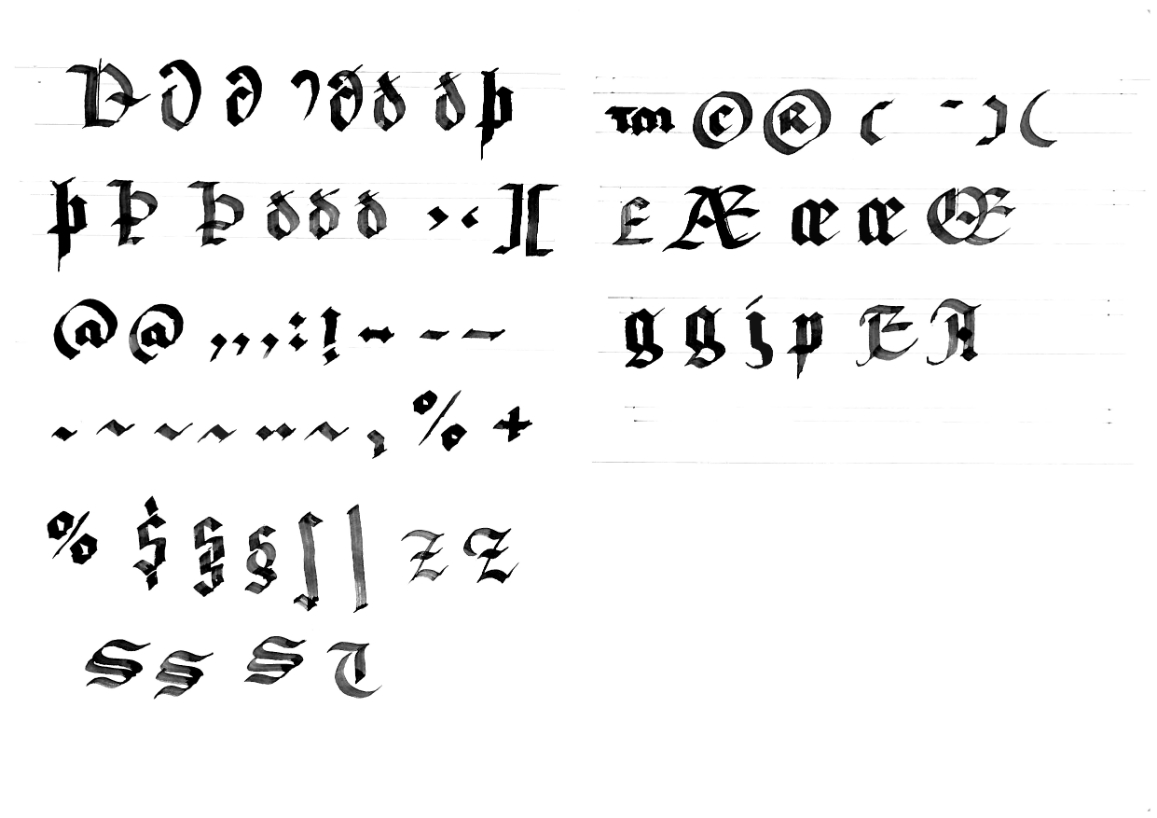 Ð ð ð ð ð ð þ
þ Þ Þ ð ð ð › ‹ ] [
@ @ , , , : ! - - -
~ ~ ~ % +
% $ § § ∫ | Z Z
S S S T
TM © ® ( - ) (
E Æ æ æ Œ
g g j p E A